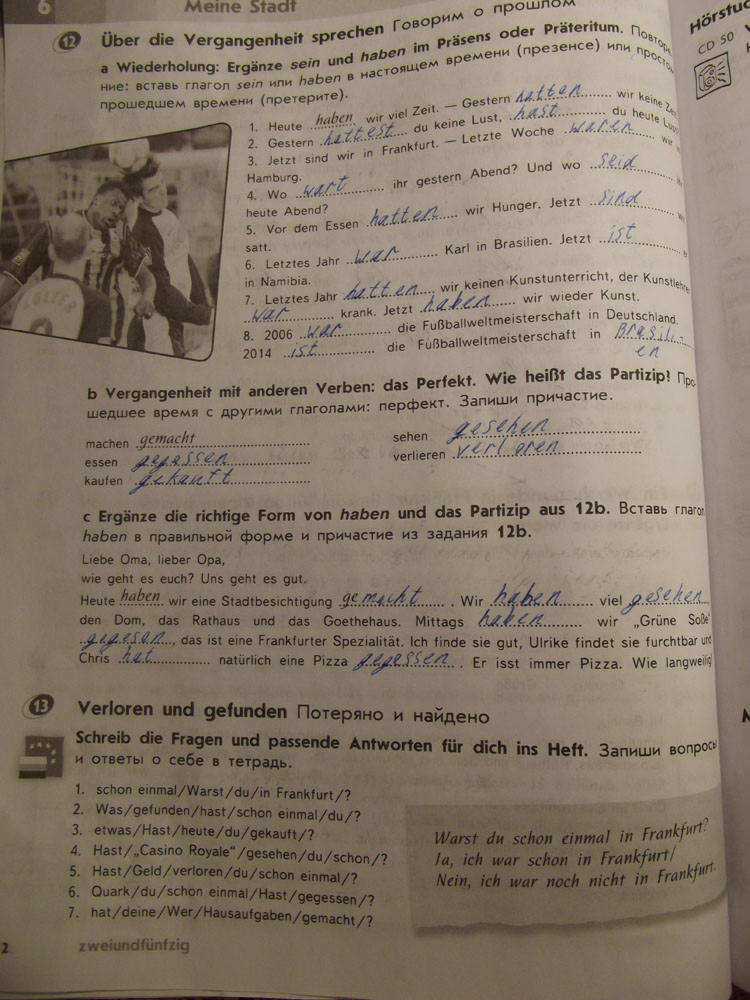 6 Meine Stadt
12 Über die Vergangenheit sprechen Говорим о прошлом
a Wiederholung: Ergänze sein und haben im Präsens oder Präteritum. Повторе
ние: вставь глагол sein или haben в настоящем времени (презенсе) или просто
прошедшем времени (претерите).
1. Heute haben wir viel Zeit. – Gestern hatten wir keine Zeit
2. Gestern hattest du keine Lust, hast du heute Lust
3. Jetzt sind wir in Frankfurt. – Letzte Woche waren wir
Hamburg.
4. Wo wart ihr gestern Abend? Und wo seid
heute Abend?
5. Vor dem Essen hatten wir Hunger. Jetzt sind
satt.
6. Letztes Jahr war Karl in Brasilien. Jetzt ist er
in Namibia.
7. Letztes Jahr hatten wir keinen Kunstunterricht, der Kunstlehre
war krank. Jetzt haben wir wieder Kunst.
8. 2006 war die Fußballweltmeisterschaft in Deutschland.
2014 ist die Fußballweltmeisterschaft in Brasili
en
b Vergangenheit mit anderen Verben: das Perfekt. Wie heißt das Partizip? Про
шедшее время с другими глаголами: перфект. Запиши причастие.
machen gemacht sehen gesehen
essen gegessen verlieren verloren
kaufen gekauft
c Ergänze die richtige Form von haben und das Partizip aus 12b. Вставь глагол
haben в правильной форме и причастие из задания 12b.
Liebe Oma, lieber Opa,
wie geht es euch? Uns geht es gut.
Heute haben wir eine Stadtbesichtigung gemacht. Wir haben viel gesehen,
den Dom, das Rathaus und das Goethehaus. Mittags haben wir „Grüne Soße"
gegessen, das ist eine Frankfurter Spezialität. Ich finde sie gut, Ulrike findet sie furchtbar und
Chris hat natürlich eine Pizza gegessen. Er isst immer Pizza. Wie langweilig!
13 Verloren und gefunden Потеряно и найдено
Schreib die Fragen und passende Antworten für dich ins Heft. Запиши вопросы
и ответы о себе в тетрадь.
1. schon einmal/Warst/du/in Frankfurt/?
2. Was/gefunden/hast/schon einmal/du/?
3. etwas/Hast/heute/du/gekauft/?
4. Hast/„Casino Royale"/gesehen/du/schon/?
5. Hast/Geld/verloren/du/schon einmal/?
6. Quark/du/schon einmal/Hast/gegessen/?
7. hat/deine/Wer/Hausaufgaben/gemacht/?
Warst du schon einmal in Frankfurt?
Ja, ich war schon in Frankfurt/
Nein, ich war noch nicht in Frankfurt.
2 zweiundfünfzig
Hörstuc
CD 50